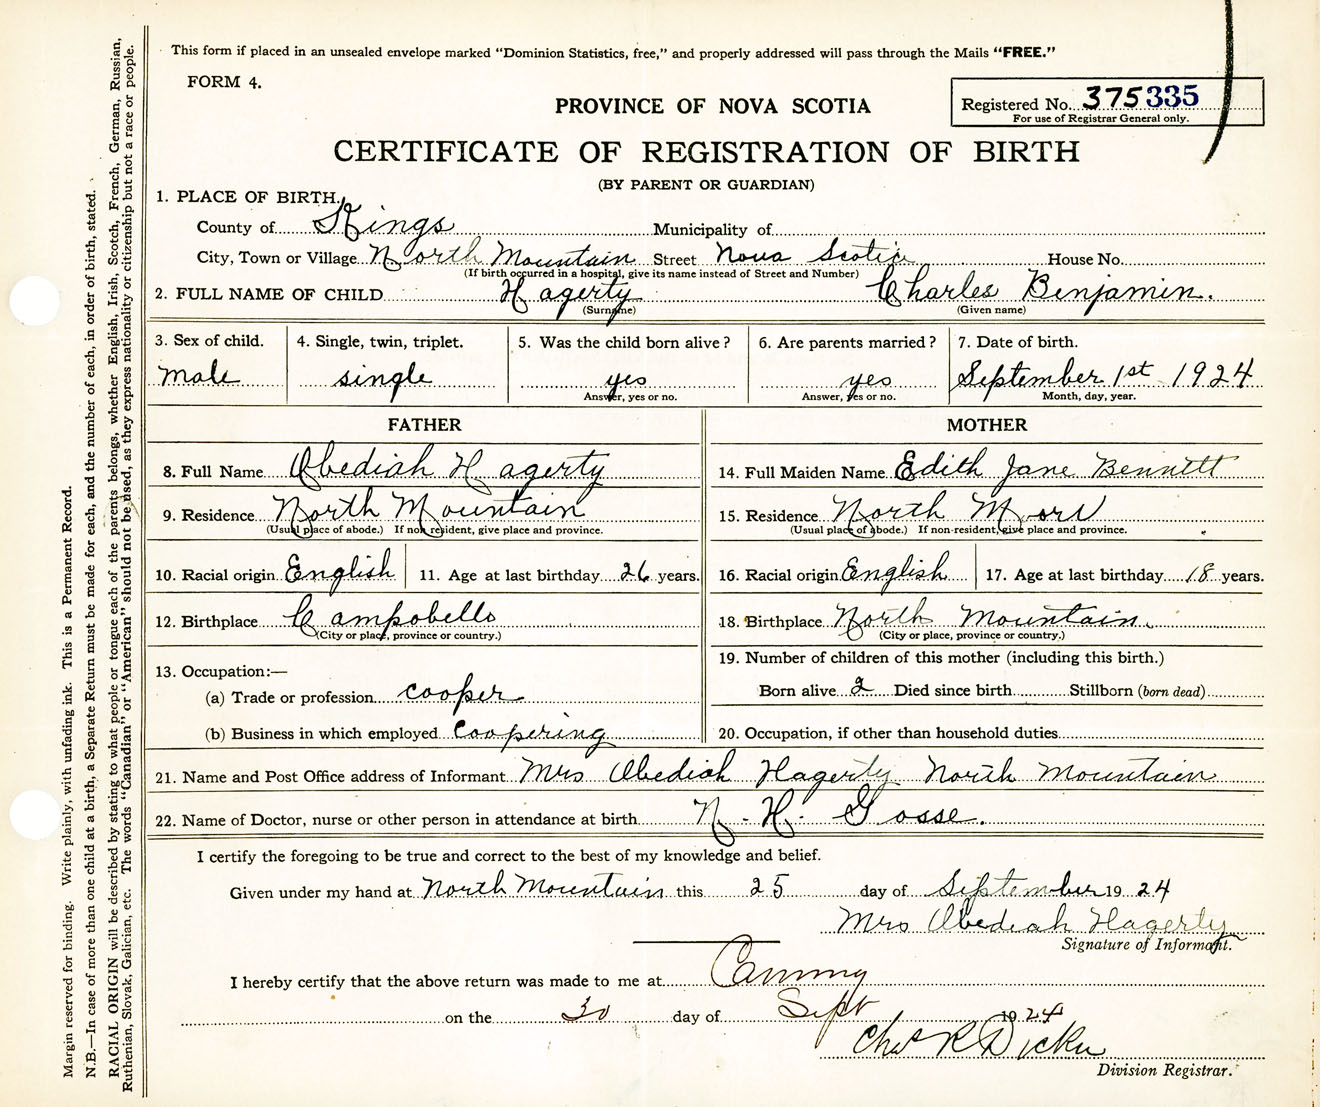 This form if placed in an unsealed envelope marked "Dominion Statistics, free," and properly addressed will pass through the Mails "FREE."
FORM 4.
Registered No. 375335
For use of Registrar General only.
PROVINCE OF NOVA SCOTIA
CERTIFICATE OF REGISTRATION OF BIRTH
(BY PARENT OR GUARDIAN)
1. PLACE OF BIRTH.
County of Kings Municipality of
City, Town or Village North Mountain Street Nova Scotia House No.
(If birth occurred in a hospital, give its name instead of Street and Number)
2. FULL NAME OF CHILD Hagerty Charles Benjamin.
(Surname) (Given name)
3. Sex of child. 4. Single, twin, triplet. 5. Was the child born alive? 6. Are parents married? 7. Date of birth.
male single yes yes September 1st 1924
Answer, yes or no. Answer, yes or no. Month, day, year.
FATHER
8. Full Name Obediah Hagerty
9. Residence North Mountain
(Usual place of abode.) If non resident, give place and province.
10. Racial origin English 11. Age at last birthday 26 years.
12. Birthplace Campobello
(City or place, province or country.)
13. Occupation:—
(a) Trade or profession cooper
(b) Business in which employed coopering
MOTHER
14. Full Maiden Name Edith Jane Bennett
15. Residence North
(Usual place of abode.) If non-resident, give place and province.
16. Racial origin English 17. Age at last birthday 18 years.
18. Birthplace North Mountain.
(City or place, province or country.)
19. Number of children of this mother (including this birth.)
Born alive 2 Died since birth Stillborn (born dead)
20. Occupation, if other than household duties
21. Name and Post Office address of Informant Mrs Obediah Hagerty North Mountain
22. Name of Doctor, nurse or other person in attendance at birth N. H. Gosse.
I certify the foregoing to be true and correct to the best of my knowledge and belief.
Given under my hand at North Mountain this 25 day of September 1924
Mrs Obediah Hagerty
Signature of Informant.
I hereby certify that the above return was made to me at
on the 30 day of Sept 1924
Chas R Dickie
Division Registrar.
Margin reserved for binding. Write plainly, with unfading ink. This is a Permanent Record.
N.B.—In case of more than one child at a birth, a Separate Return must be made for each, and the number of each, in order of birth, stated.
RACIAL ORIGIN will be described by stating to what people or tongue each of the parents belongs, whether English, Irish, Scotch, French, German, Russian,
Ruthenian, Slovak, Galician, etc. The words "Canadian" or "American" should not be used, as they express nationality or citizenship but not a race or people.